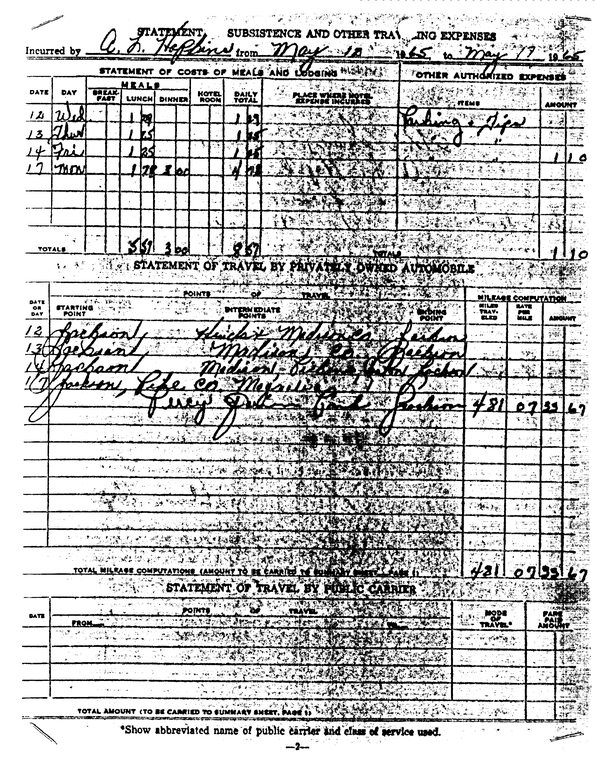 STATEMENT SUBSISTENCE AND OTHER TRAVELING EXPENSES
Incurred by A. L. Hopkins from May 10 1965 to May 17 1965
STATEMENT OF COSTS OF MEALS AND LODGING OTHER AUTHORIZED EXPENSES
DATE DAY MEALS HOTEL ROOM DAILY TOTAL PLACE WHERE HOTEL EXPENSE INCURRED ITEMS AMOUNT
BREAK-FAST LUNCH DINNER
12 Wed. 1 1 Parking & Tips
13 Thur 1 25 1 "
14 Fri 1 25 1 " 1 10
17 Mon 1 78 3 00 4 78
TOTALS 5 57 3 00 8 57 TOTALS 1 10
STATEMENT OF TRAVEL BY PRIVATELY OWNED AUTOMOBILE
DATE OR DAY POINTS OF TRAVEL MILEAGE COMPUTATION
STARTING POINT INTERMEDIATE POINTS ENDING POINT MILES TRAV-ELED RATE PER MILE AMOUNT
12 Jackson, Madison Co. Jackson
13 Jackson, Madison Co. Jackson
14 Jackson, Madison, Jackson
17 Jackson, Pike Co. Magnolia,
Percy Park Jackson 481 07 33 67
TOTAL MILEAGE COMPUTATIONS (AMOUNT TO BE CARRIED TO SUMMARY SHEET, PAGE 1) 481 07 33 67
STATEMENT OF TRAVEL BY PUBLIC CARRIER
DATE POINTS OF TRAVEL MODE OF TRAVEL* FARE PAID AMOUNT
FROM
TOTAL AMOUNT (TO BE CARRIED TO SUMMARY SHEET, PAGE 1)
*Show abbreviated name of public carrier and class of service used.
—2—